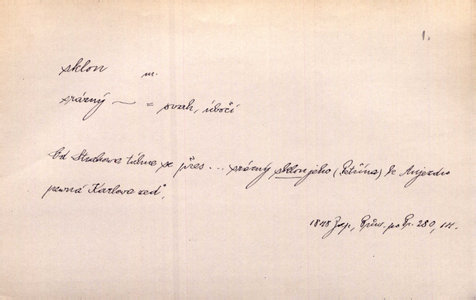 1.
sklon m.
srázný ~ = svah, úbočí
Od Strahova táhne se přes ... srázný sklon jeho (Petřína) k Aujezdu
pevná Karlova zeď,
1848 Zap, Prův. po Pr. 280, 14.